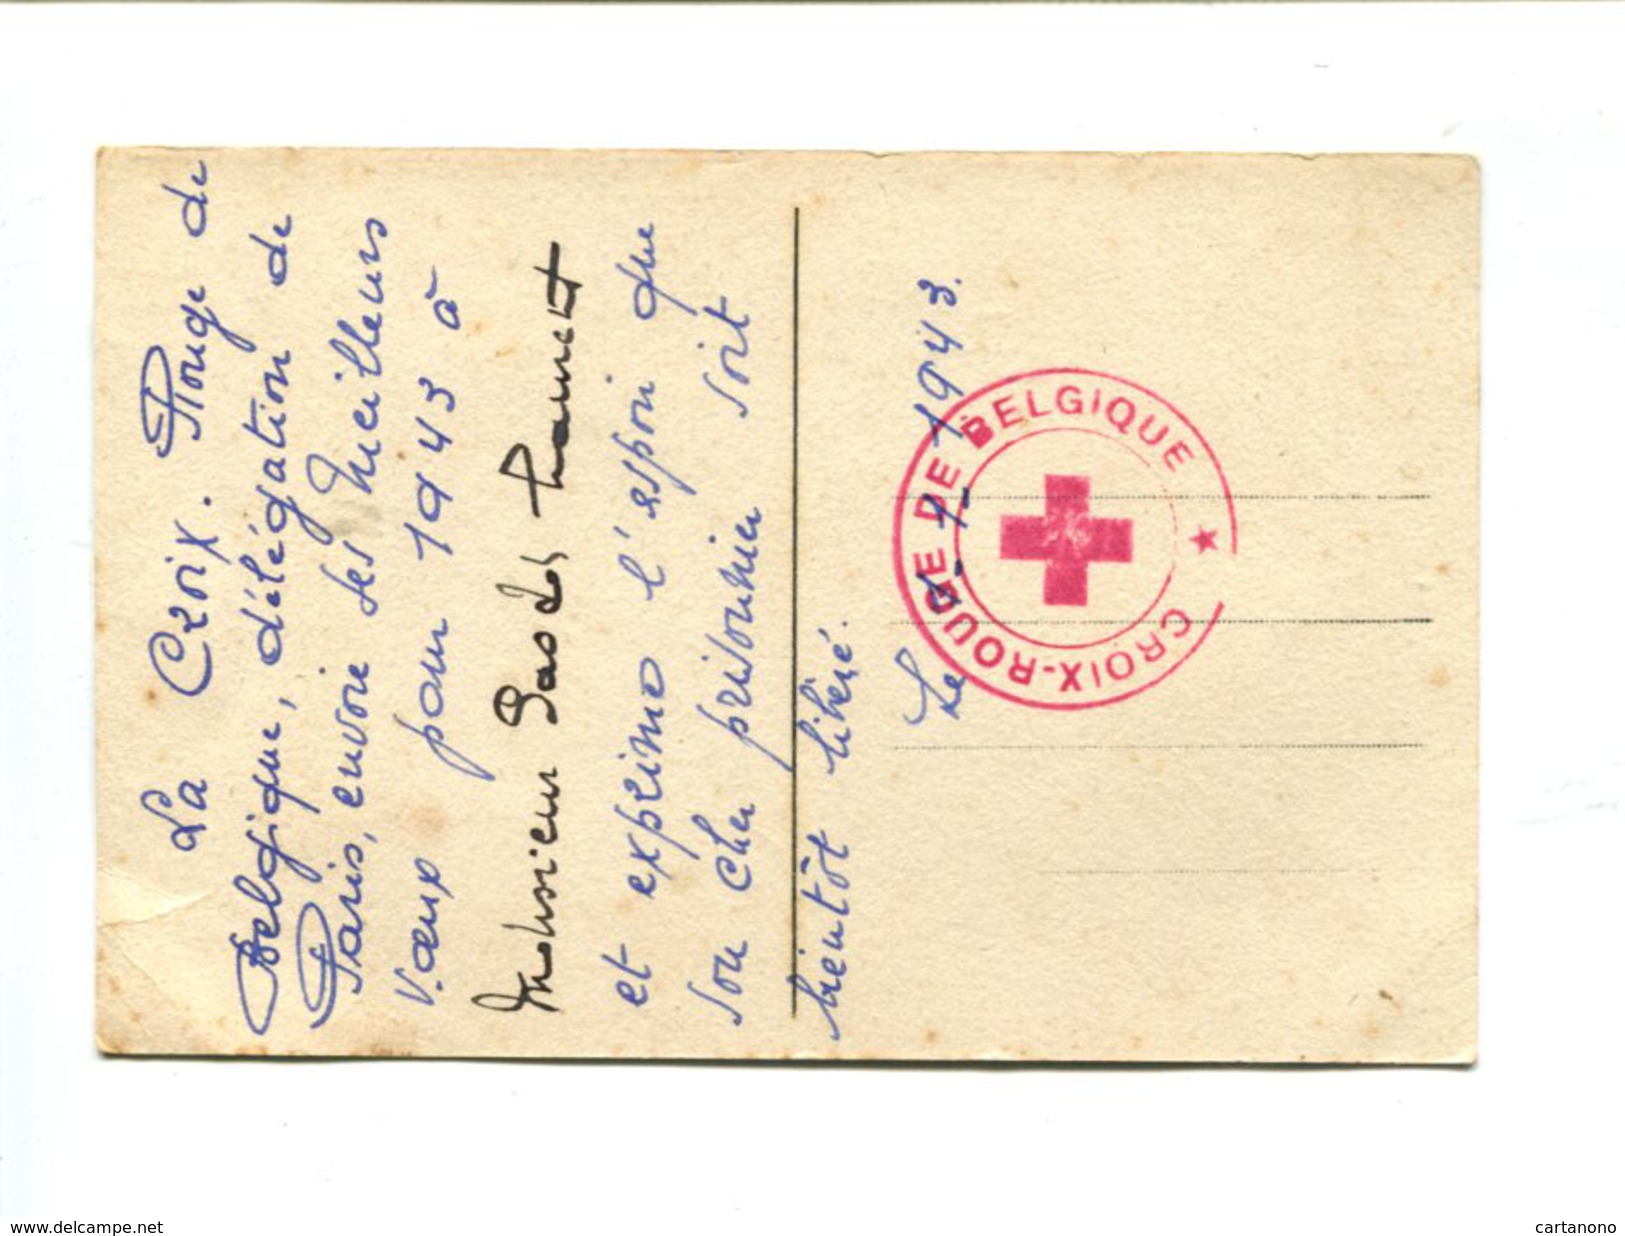 La Croix. Rouge de
Belgique, délégation de
Paris, envoie ses meilleurs
vœux pour 1943 à
Monsieur
et exprime l'espoir que
son cher prisonnier soit
bientôt libéré.
Le 1-1-1943.
CROIX-ROUGE DE BELGIQUE
www.delcampe.net
cartanono